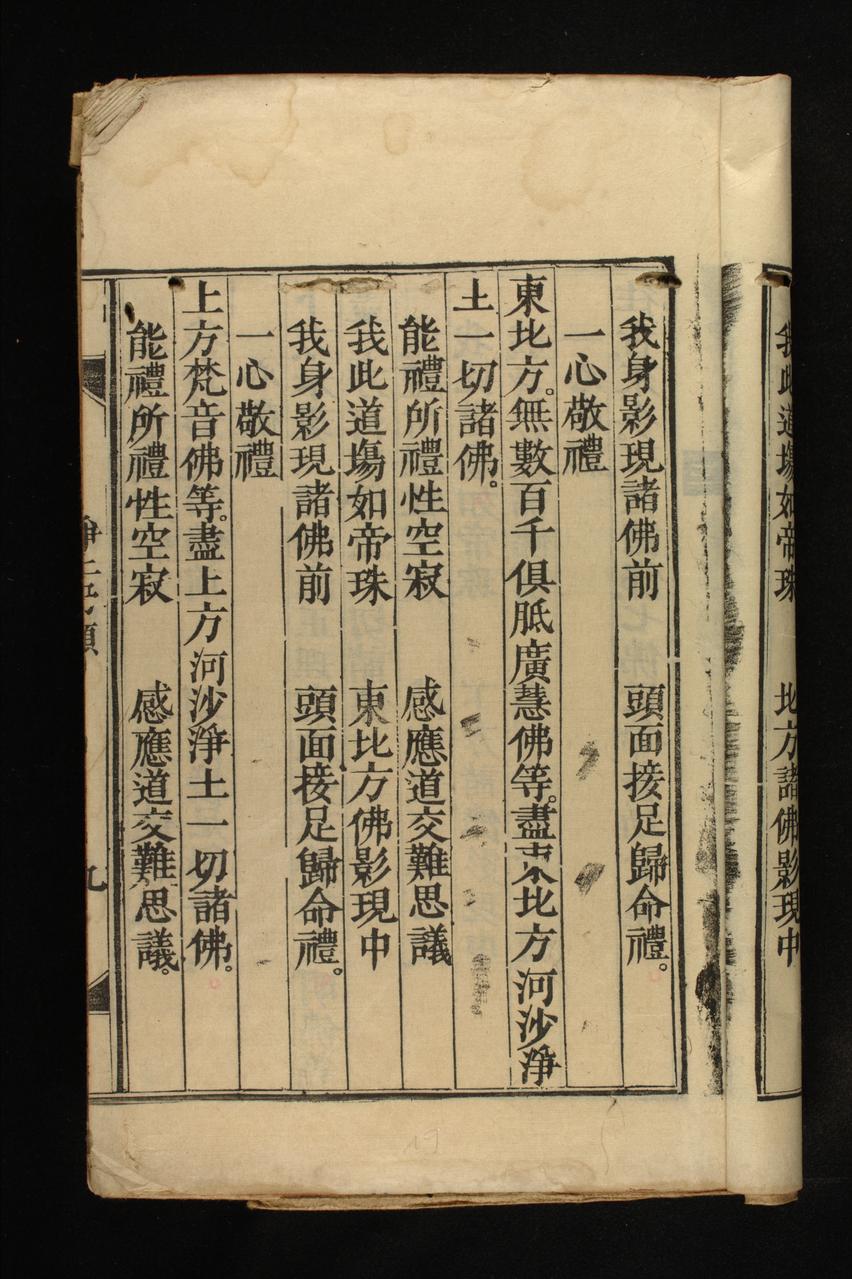 我此道塲如帝珠　北方諸佛影現中
我身影現諸佛前　頭面接足歸命禮。
一心敬禮
東北方。無數百千俱胝廣慧佛等。盡東北方河沙淨
土一切諸佛。
能禮所禮性空寂　感應道交難思議
我此道塲如帝珠　東北方佛影現中
我身影現諸佛前　頭面接足歸命禮。
一心敬禮
上方梵音佛等。盡上方河沙淨土一切諸佛。
能禮所禮性空寂　感應道交難思議。
九